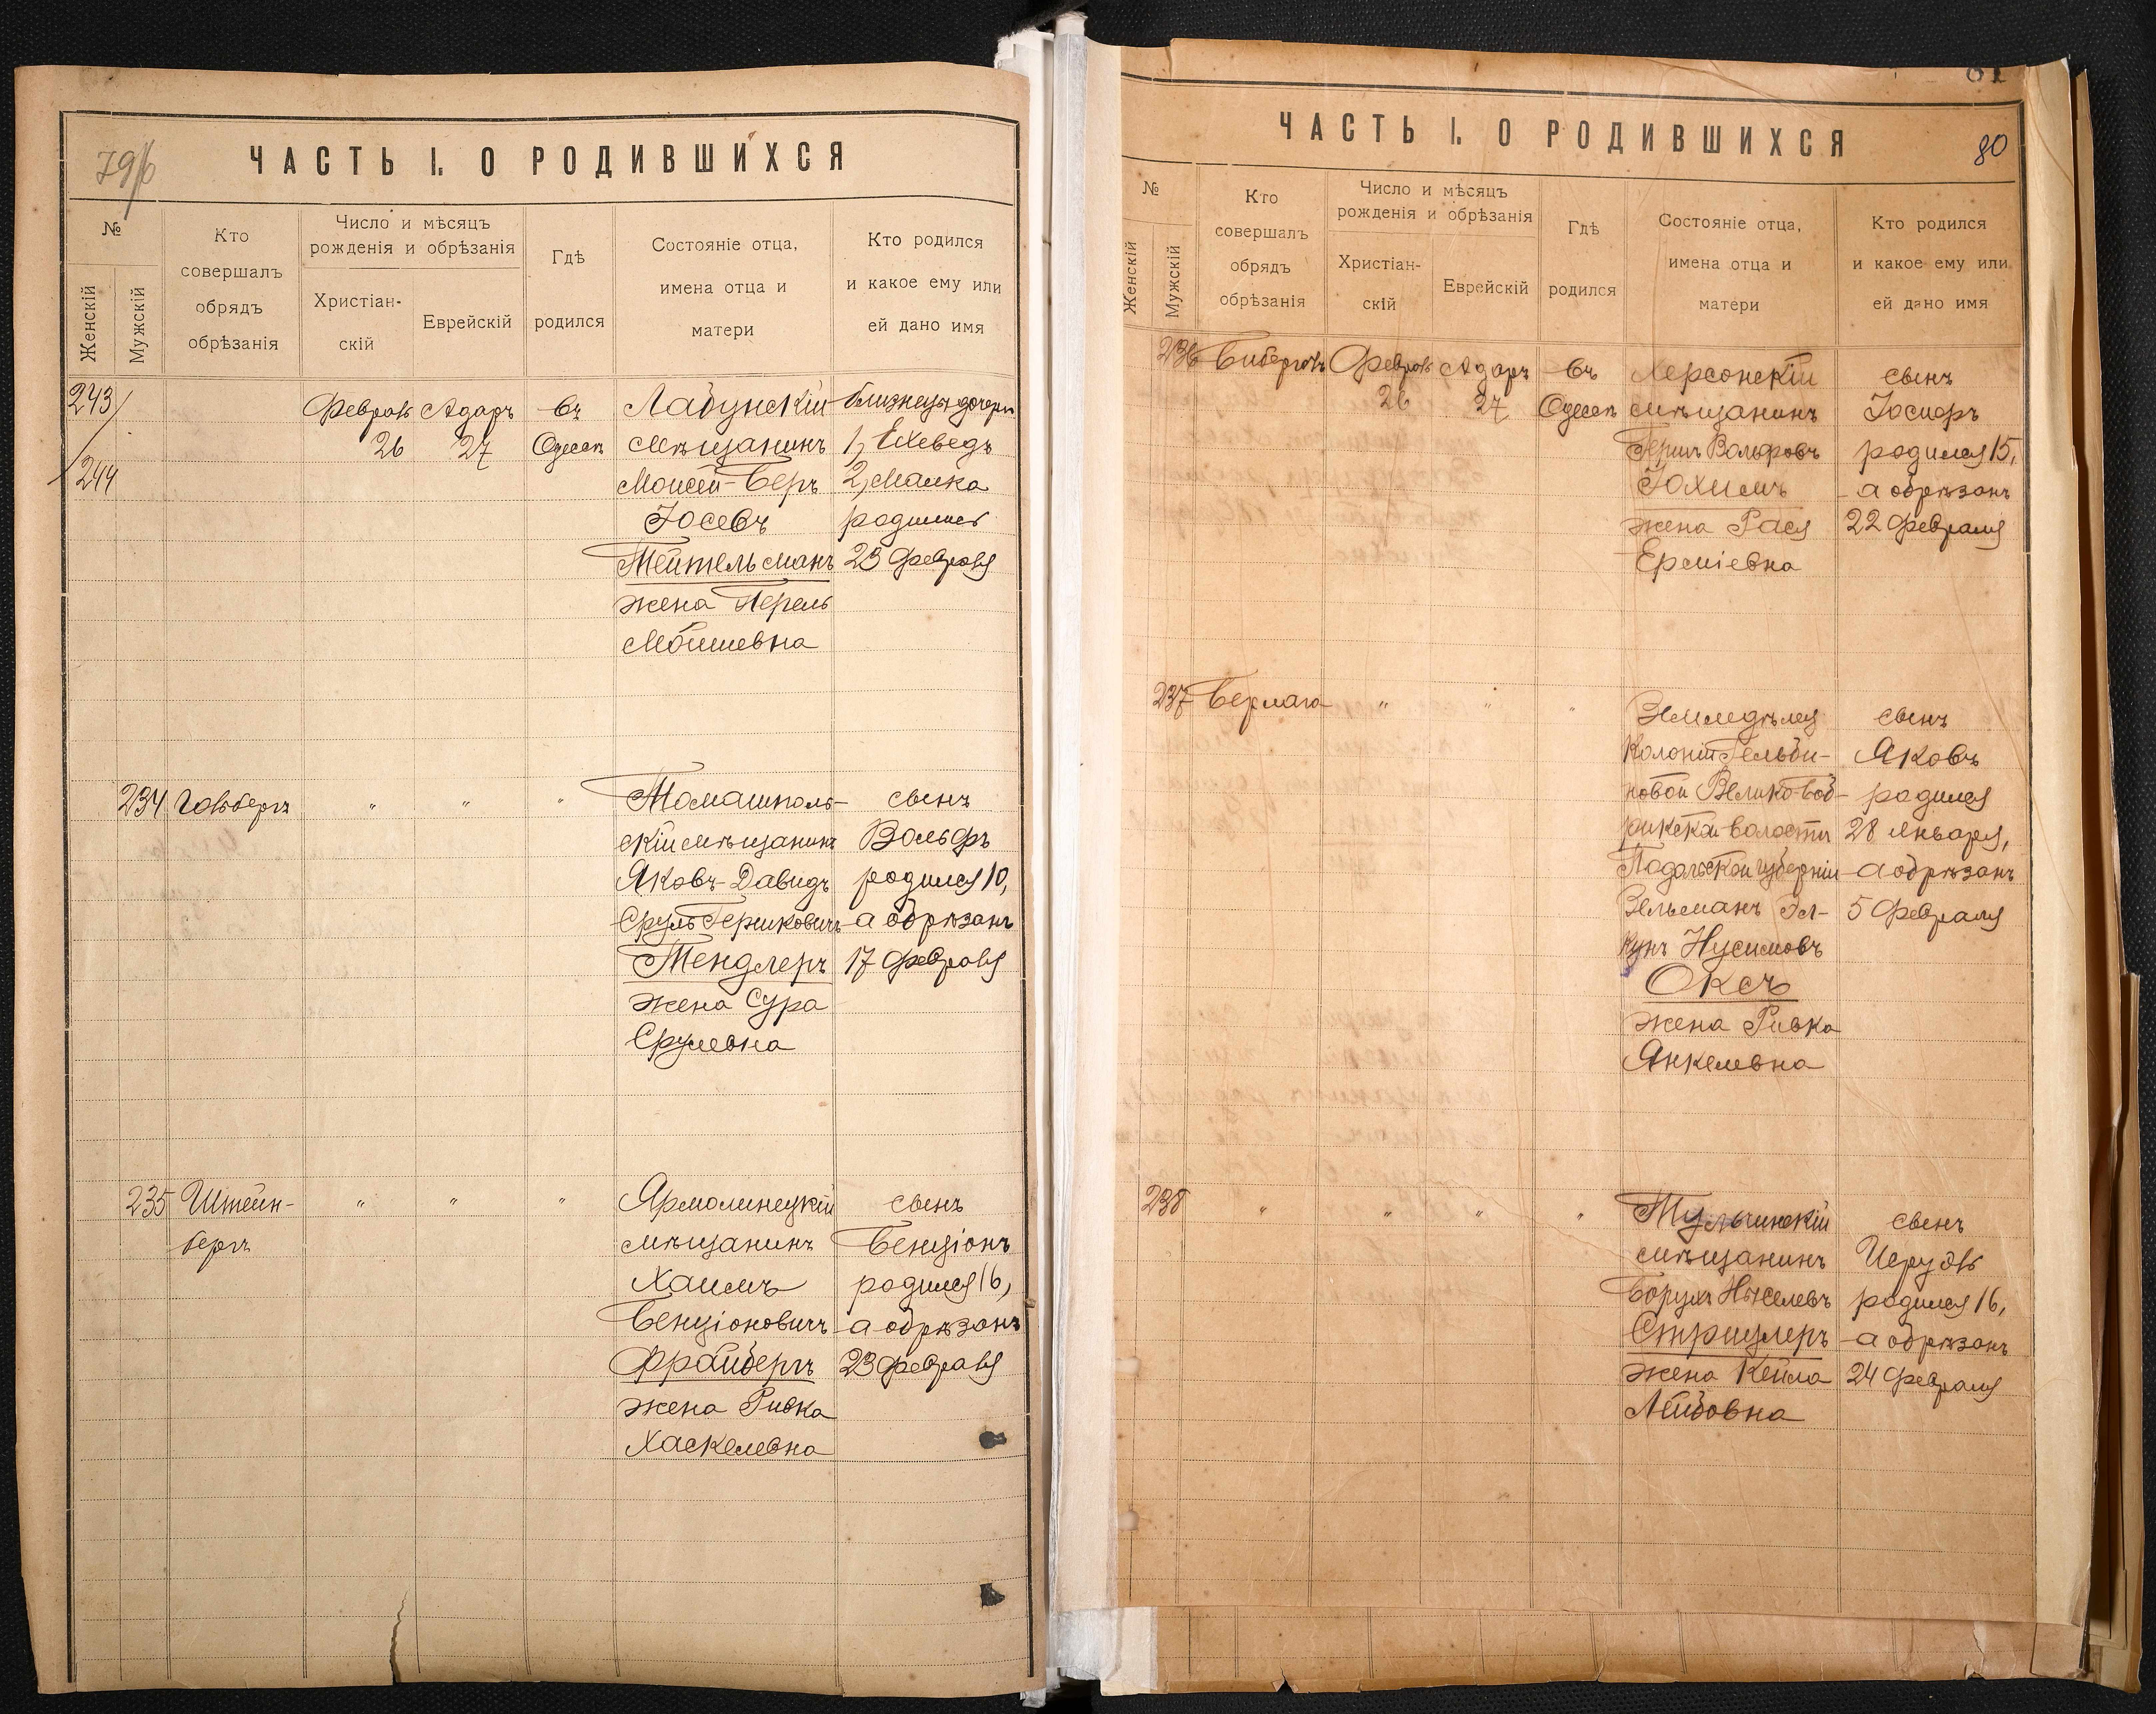 ЧАСТЬ I. О РОДИВШИХСЯ
№
Женскій
Мужскій
Кто
совершалъ
обрядъ
обрѣзанія
Число и мѣсяцъ
рожденія и обрѣзанія
Христіан-
скій
Еврейскій
Гдѣ
родился
Состояніе отца,
имена отца и
матери
Кто родился
и какое ему или
ей дано имя
243
244
Февраль
26
Адаръ
27
въ
Одессѣ
Лабунскій
мѣщанинъ
Моисей-Беръ
Іосевъ
Тейтельманъ
жена Перель
Мошиевна
близнецы дочери
1, Ехеведъ
2, Малка
родились
23 февраля
234
Гольбергъ
"
"
"
Томашполь-
скій мѣщанинъ
Яковъ-Давидъ
Сруль Гершковичъ
Тендлеръ
жена Сура
Срулевна
сынъ
Вольфъ
родился 10,
а обрѣзанъ
17 февраля
235
Штейн-
бергъ
"
"
"
Ярмолинецкій
мѣщанинъ
Хаимъ
Бенціоновичъ
Фрайбергъ
жена Ривка
Хаскелевна
сынъ
Бенціонъ
родился 16,
а обрѣзанъ
23 февраля
ЧАСТЬ I. О РОДИВШИХСЯ
80
№
Женскій
Мужскій
Кто
совершалъ
обрядъ
обрѣзанія
Число и мѣсяцъ
рожденія и обрѣзанія
Христіан-
скій
Еврейскій
Гдѣ
родился
Состояніе отца,
имена отца и
матери
Кто родился
и какое ему или
ей дано имя
236
Февраль
26
Адаръ
27
въ
Одессѣ
Херсонскій
мѣщанинъ
Гершъ Вольфовъ
Іохимъ
жена Рася
Ерміевна
сынъ
Іосифъ
родился 15,
а обрѣзанъ
22 февраля
237
Берлага
"
"
"
Земледѣлец
колоніи Гельби-
новой Великобоб-
рикской волости
Подольской губерніи
Зельманъ Эл-
кунъ Нусимовъ
Оксъ
жена Ривка
Янкелевна
сынъ
Яковъ
родился
28 января,
а обрѣзанъ
5 февраля
238
"
"
"
"
Тульчинскій
мѣщанинъ
Борухъ Нхселевъ
Стрицлеръ
жена Кейла
Лейбовна
сынъ
Исруль
родился 16,
а обрѣзанъ
24 февраля